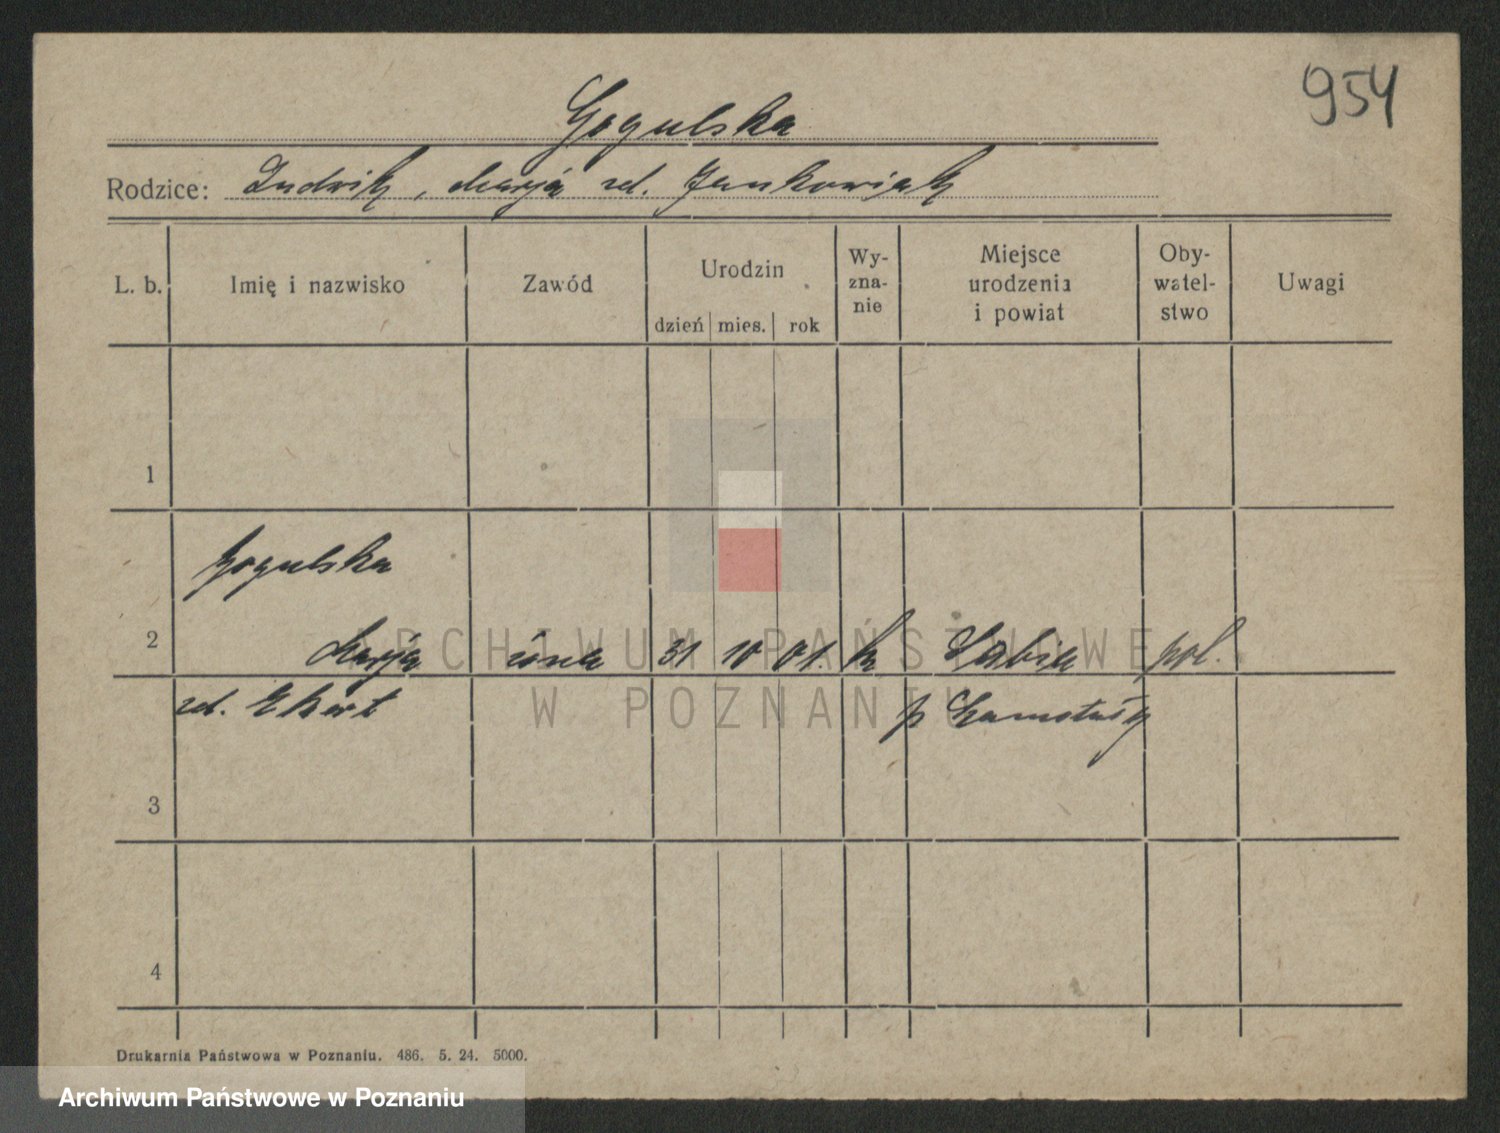 954
Gogulska
Rodzice: Ludwik, Marja zd. Jankowiak
L. b. Imię i nazwisko Zawód Urodzin Wyznanie Miejsce urodzenia i powiat Obywatelstwo Uwagi
dzień mies. rok
1
Gogulska
2 Marja żona 31 10 01. k pol.
zd. Ekert p Szamotuły
3
4
Drukarnia Państwowa w Poznaniu. 486. 5. 24. 5000.
ARCHIWUM PAŃSTWOWE
W POZNANIU
Archiwum Państwowe w Poznaniu